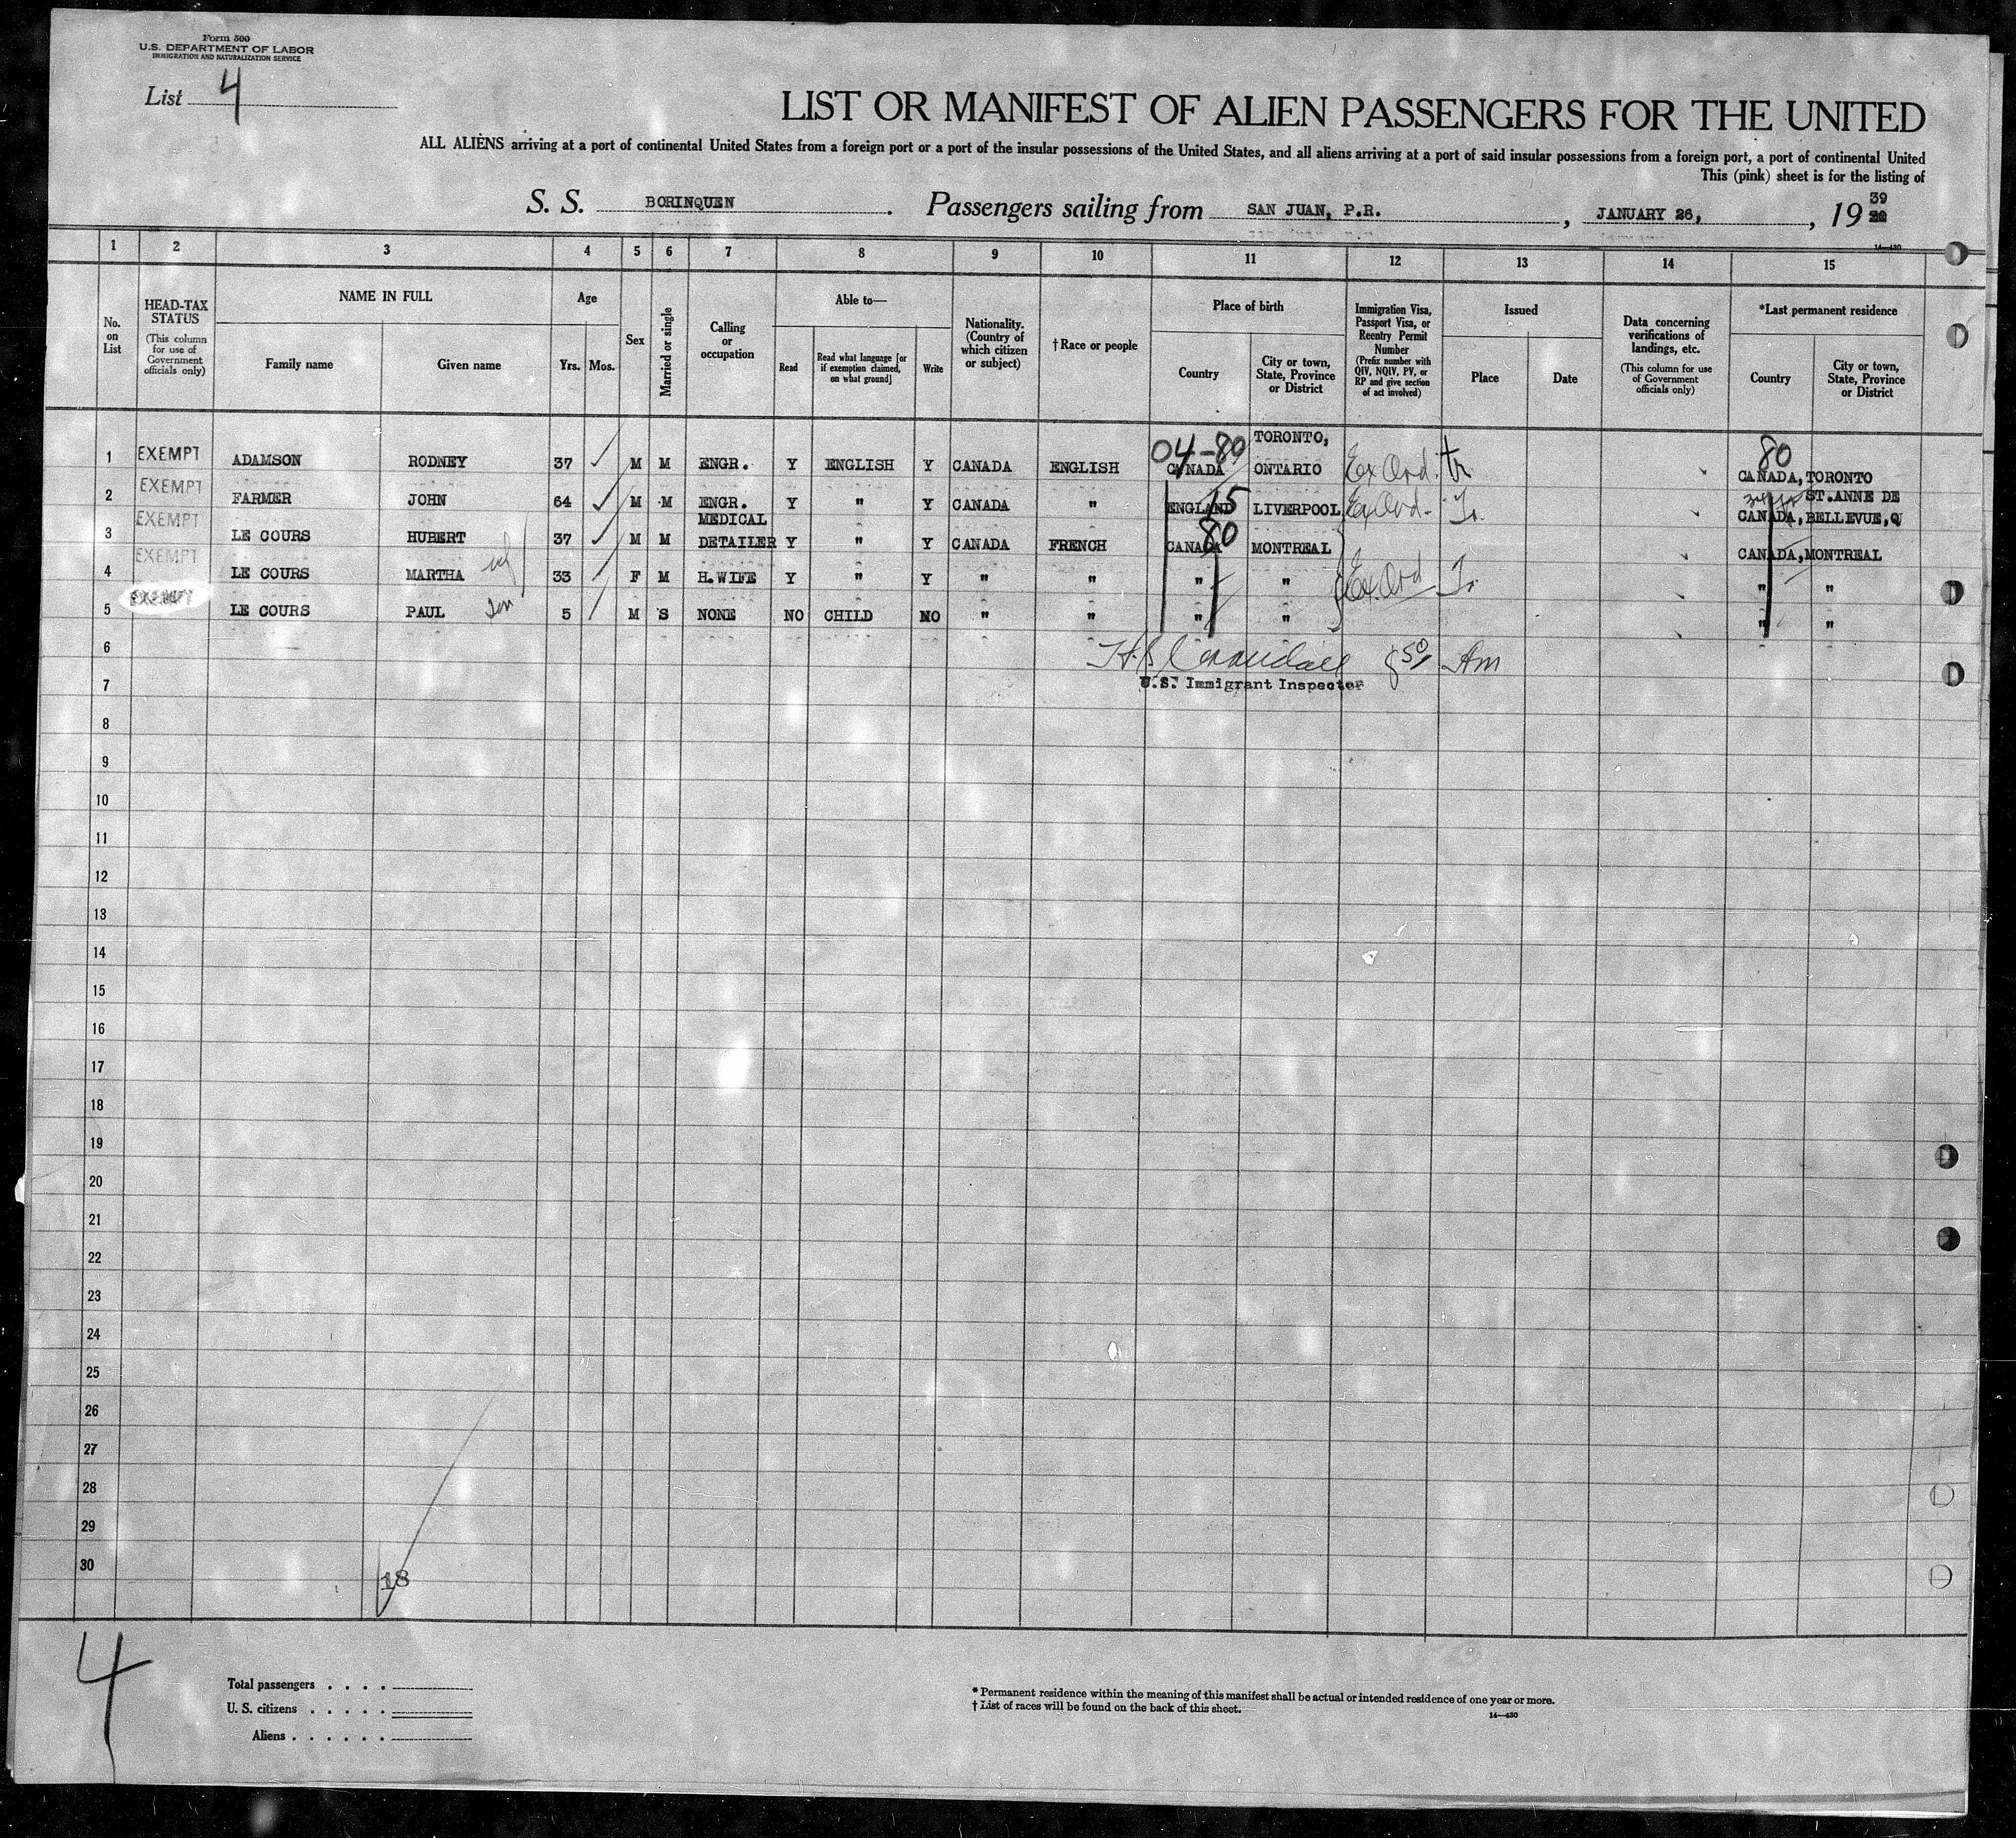 Form 500
U.S. DEPARTMENT OF LABOR
IMMIGRATION AND NATURALIZATION SERVICE
List 4
LIST OR MANIFEST OF ALIEN PASSENGERS FOR THE UNITED
ALL ALIENS arriving at a port of continental United States from a foreign port or a port of the insular possessions of the United States, and all aliens arriving at a port of said insular possessions from a foreign port, a port of continental United
This (pink) sheet is for the listing of
S. S. BORINQUEN. Passengers sailing from SAN JUAN, P.R., JANUARY 26, 19 39
14—430
1 2 3 4 5 6 7 8 9 10 11 12 13 14 15
No. on List
HEAD-TAX STATUS
(This column for use of Government officials only)
NAME IN FULL
Family name
Given name
Age
Yrs. Mos.
Sex
Married or single
Calling or occupation
Able to—
Read
Read what language [or if exemption claimed, on what ground]
Write
Nationality. (Country of which citizen or subject)
†Race or people
Place of birth
Country
City or town, State, Province or District
Immigration Visa, Passport Visa, or Reentry Permit Number
(Prefix number with QIV, NQIV, PV, or RP and give section of act involved)
Issued
Place
Date
Data concerning verifications of landings, etc.
(This column for use of Government officials only)
*Last permanent residence
Country
City or town, State, Province or District
04-80 TORONTO, 80
1 EXEMPT ADAMSON RODNEY 37 M M ENGR. Y ENGLISH Y CANADA ENGLISH CANADA ONTARIO Ex Ord. tr CANADA, TORONTO
15 ST. ANNE DE
2 EXEMPT FARMER JOHN 64 M M ENGR. Y " Y CANADA " ENGLAND LIVERPOOL Ex Ord- Tr. CANADA, BELLEVUE, Q
MEDICAL 80
3 EXEMPT LE COURS HUBERT 37 M M DETAILER Y " Y CANADA FRENCH CANADA MONTREAL CANADA, MONTREAL
4 EXEMPT LE COURS MARTHA wf 33 F M H.WIFE Y " Y " " " " Ex. Ord Tr. " "
5 EXEMPT LE COURS PAUL Son 5 M S NONE NO CHILD NO " " " " " "
6 850 Am
7 U.S. Immigrant Inspector
8
9
10
11
12
13
14
15
16
17
18
19
20
21
22
23
24
25
26
27
28
29
30
18
4
Total passengers . . . .
U. S. citizens . . . . .
Aliens . . . . . .
* Permanent residence within the meaning of this manifest shall be actual or intended residence of one year or more.
† List of races will be found on the back of this sheet.
14—430